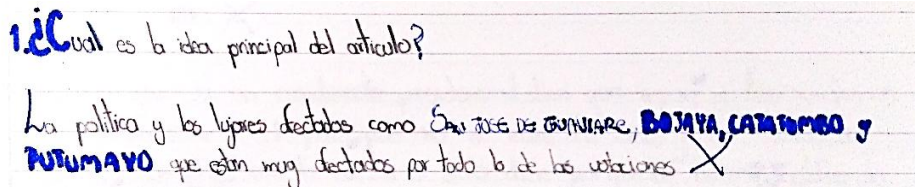 1.¿Cual es la idea principal del articulo?
La politica y los lugares afectados como San JOSE DE GUAVIARE, BOJAYA, CATATUMBO y
PUTUMAYO que estan muy afectados por todo lo de las votaciones X